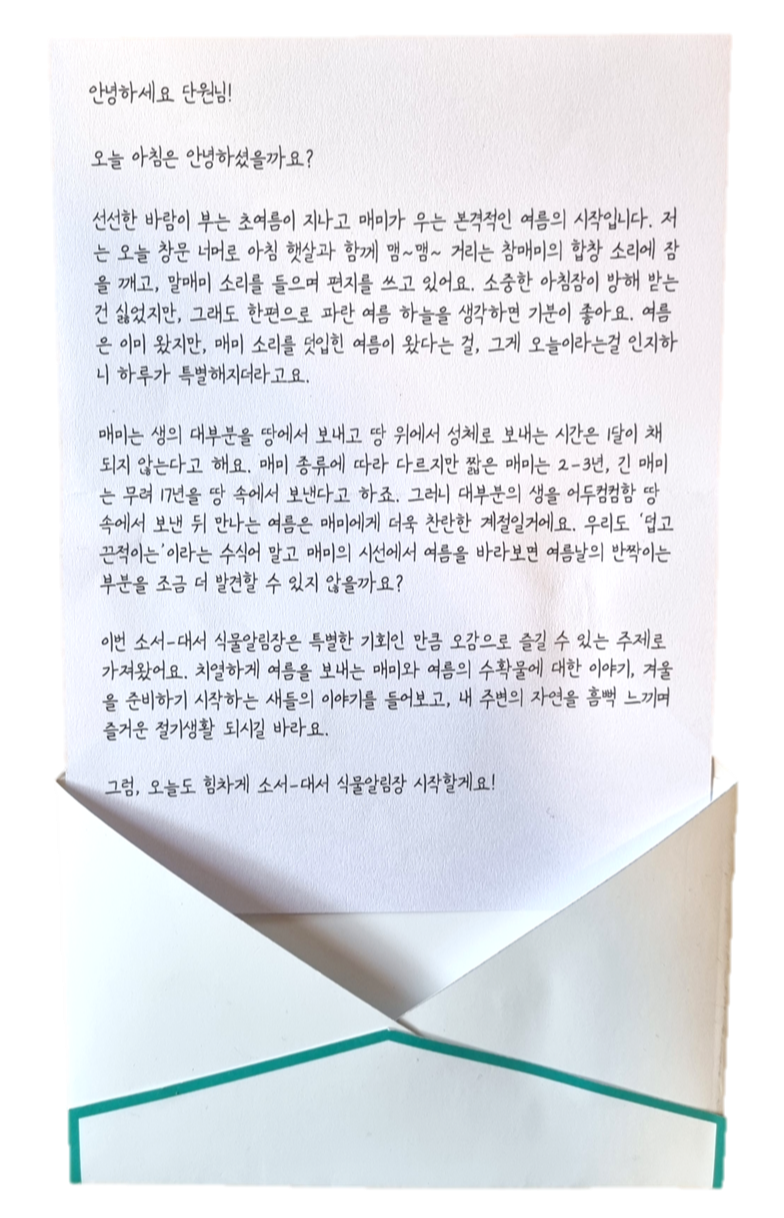 안녕하세요 단원님!
오늘 아침은 안녕하셨을까요?
선선한 바람이 부는 초여름이 지나고 매미가 우는 본격적인 여름의 시작입니다. 저
는 오늘 창문 너머로 아침 햇살과 함께 맴~맴~ 거리는 참매미의 합창 소리에 잠
을 깨고, 말매미 소리를 들으며 편지를 쓰고 있어요. 소중한 아침잠이 방해 받는
건 싫었지만, 그래도 한편으로 파란 여름 하늘을 생각하면 기분이 좋아요. 여름
은 이미 왔지만, 매미 소리를 덧입힌 여름이 왔다는 걸, 그게 오늘이라는걸 인지하
니 하루가 특별해지더라고요.
매미는 생의 대부분을 땅에서 보내고 땅 위에서 성체로 보내는 시간은 1달이 채
되지 않는다고 해요. 매미 종류에 따라 다르지만 짧은 매미는 2-3년, 긴 매미
는 무려 17년을 땅 속에서 보낸다고 하죠. 그러니 대부분의 생을 어두컴컴함 땅
속에서 보낸 뒤 만나는 여름은 매미에게 더욱 찬란한 계절일거에요. 우리도 '덥고
끈적이는'이라는 수식어 말고 매미의 시선에서 여름을 바라보면 여름날의 반짝이는
부분을 조금 더 발견할 수 있지 않을까요?
이번 소서-대서 식물알림장은 특별한 기회인 만큼 오감으로 즐길 수 있는 주제로
가져왔어요. 치열하게 여름을 보내는 매미와 여름의 수확물에 대한 이야기, 겨울
을 준비하기 시작하는 새들의 이야기를 들어보고, 내 주변의 자연을 흠뻑 느끼며
즐거운 절기생활 되시길 바라요.
그럼, 오늘도 힘차게 소서-대서 식물알림장 시작할게요!